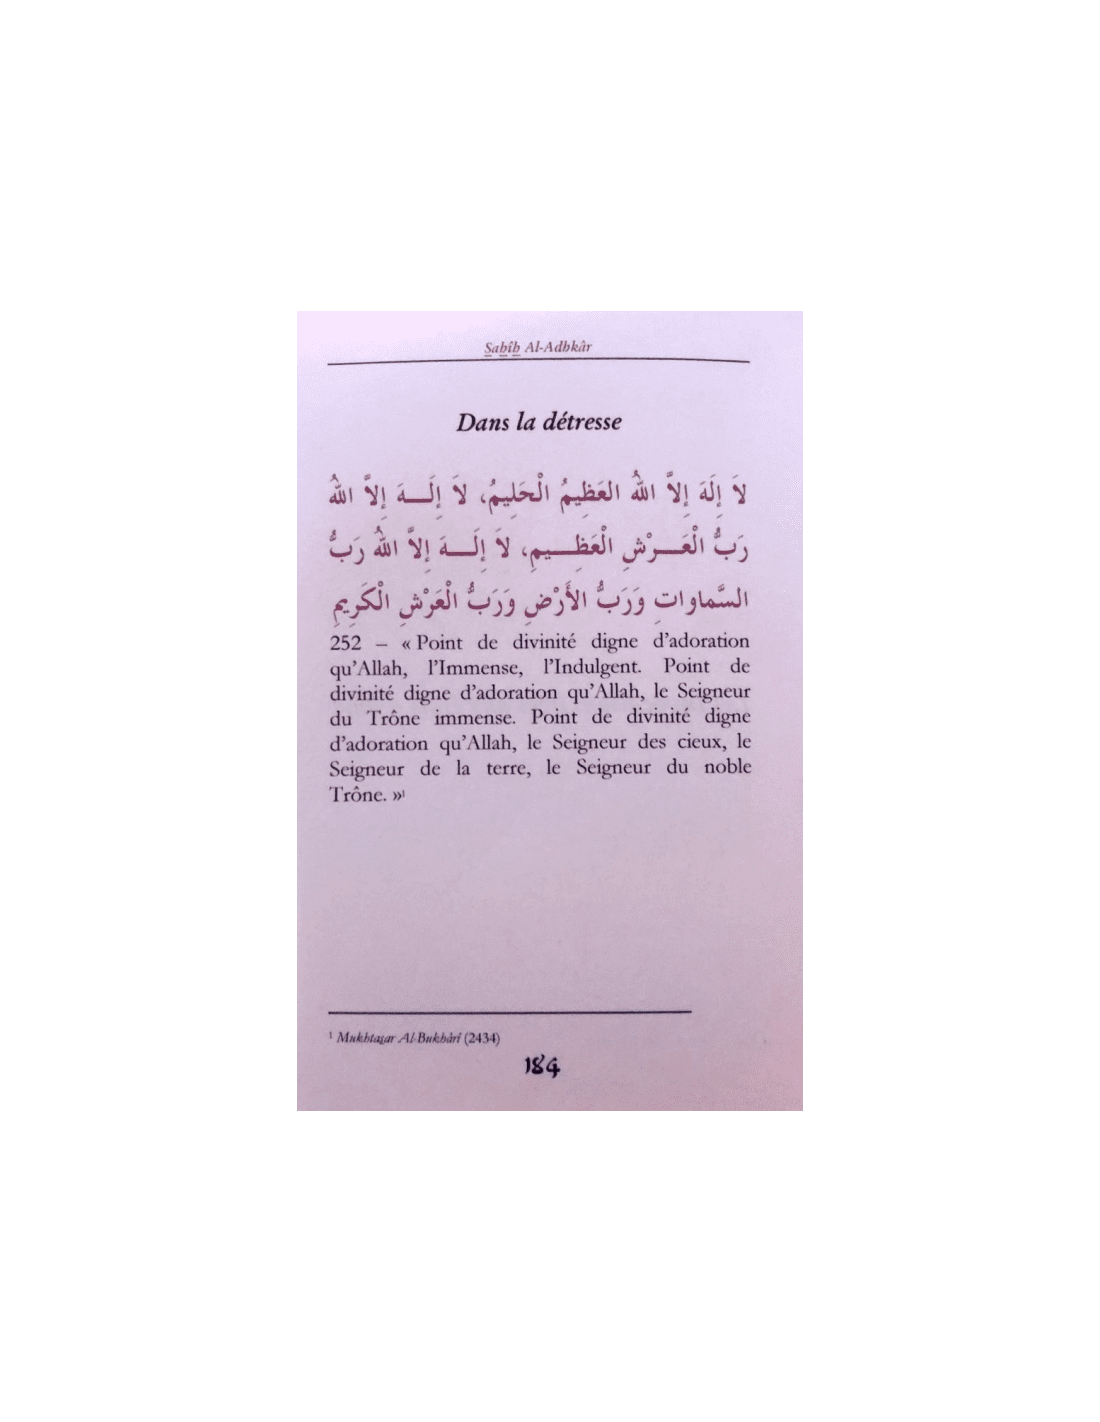 Sahîh Al-Adhkâr
Dans la détresse
لاَ إِلَهَ إِلاَّ اللهُ العَظِيمُ الْحَلِيمُ، لاَ إِلَـهَ إِلاَّ اللهُ
رَبُّ الْعَـرْشِ الْعَظِـيمِ، لاَ إِلَـهَ إِلاَّ اللهُ رَبُّ
السَّماواتِ وَرَبُّ الأَرْضِ وَرَبُّ الْعَرْشِ الْكَرِيمِ
252 – « Point de divinité digne d’adoration
qu’Allah, l’Immense, l’Indulgent. Point de
divinité digne d’adoration qu’Allah, le Seigneur
du Trône immense. Point de divinité digne
d’adoration qu’Allah, le Seigneur des cieux, le
Seigneur de la terre, le Seigneur du noble
Trône. »¹
¹ Mukhtasar Al-Bukhârî (2434)
184